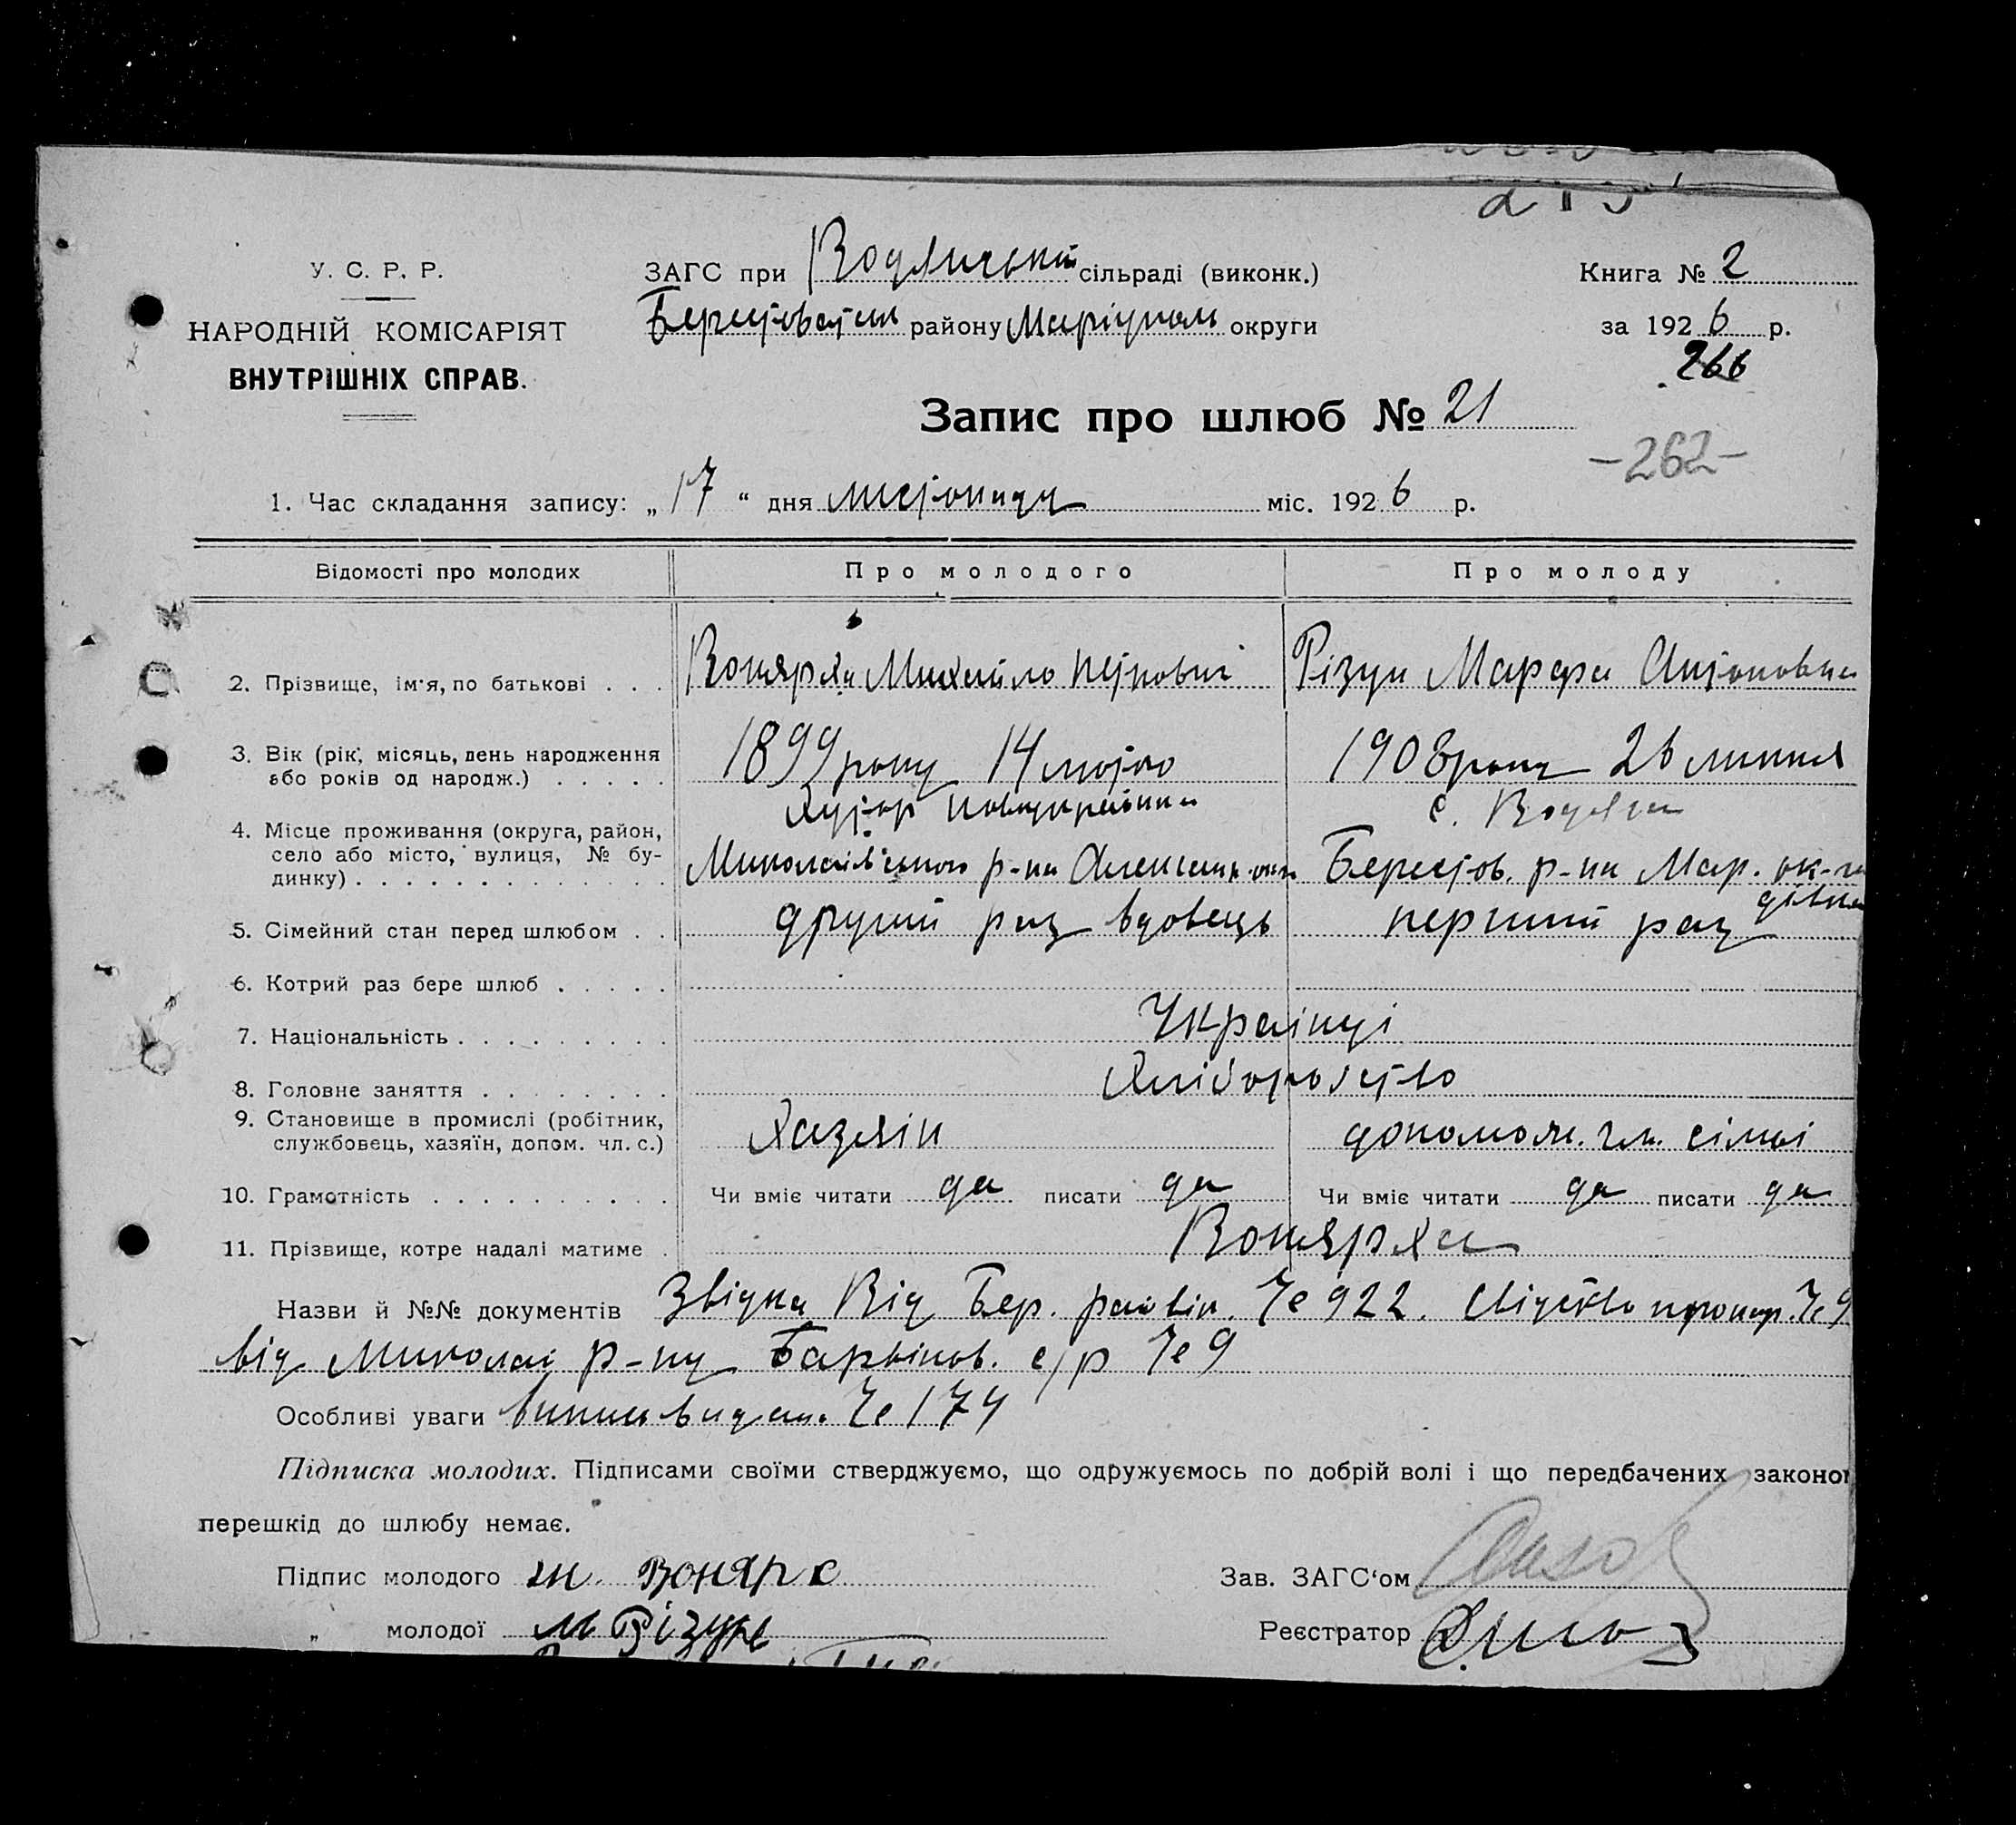 У. С. Р. Р.
НАРОДНІЙ КОМІСАРІЯТ
ВНУТРІШНІХ СПРАВ.
ЗАГС при Водянській сільраді (виконк.)
Берестовськ району Маріупол округи
Книга № 2
за 1926 р.
266
Запис про шлюб № 21
-262-
1. Час складання запису: „17“ дня листопаду міс. 1926 р.
Відомості про молодих Про молодого Про молоду
2. Прізвище, ім'я, по батькові . . . Вонярха Михайло Петрович Різун Марфа Антоновна
3. Вік (рік, місяць, день народження
або років од народж.) . . . . . 1899 року 14 лютого 1908 року 26 липня
Хутор Новоукраінка с. Водяна
4. Місце проживання (округа, район,
село або місто, вулиця, № бу-
динку) . . . . . . . . . . . . . Миколаівського р-на Берестов. р-на Мар. ок-га
5. Сімейний стан перед шлюбом . . другий раз вдовець перший раз дівка
6. Котрий раз бере шлюб . . . . .
7. Національність . . . . . . . . . Українці
8. Головне заняття . . . . . . . . Хліборобство
9. Становище в промислі (робітник,
службовець, хазяїн, допом. чл. с.) Хазяін допомож. чл. сімьі
10. Грамотність . . . . . . . . . . Чи вміє читати да писати да Чи вміє читати да писати да
11. Прізвище, котре надалі матиме . Вонярха
Назви й №№ документів Звідка Від Бер. райвік. № 922. Свідство № 9
від Миколаі р-ну Барвінов. с/р № 9
Особливі уваги випись видана № 174
Підписка молодих. Підписами своїми стверджуємо, що одружуємось по добрій волі і що передбачених законом
перешкід до шлюбу немає.
Підпис молодого м. Вонярх Зав. ЗАГС‘ом
„ молодої м Різун Реєстратор